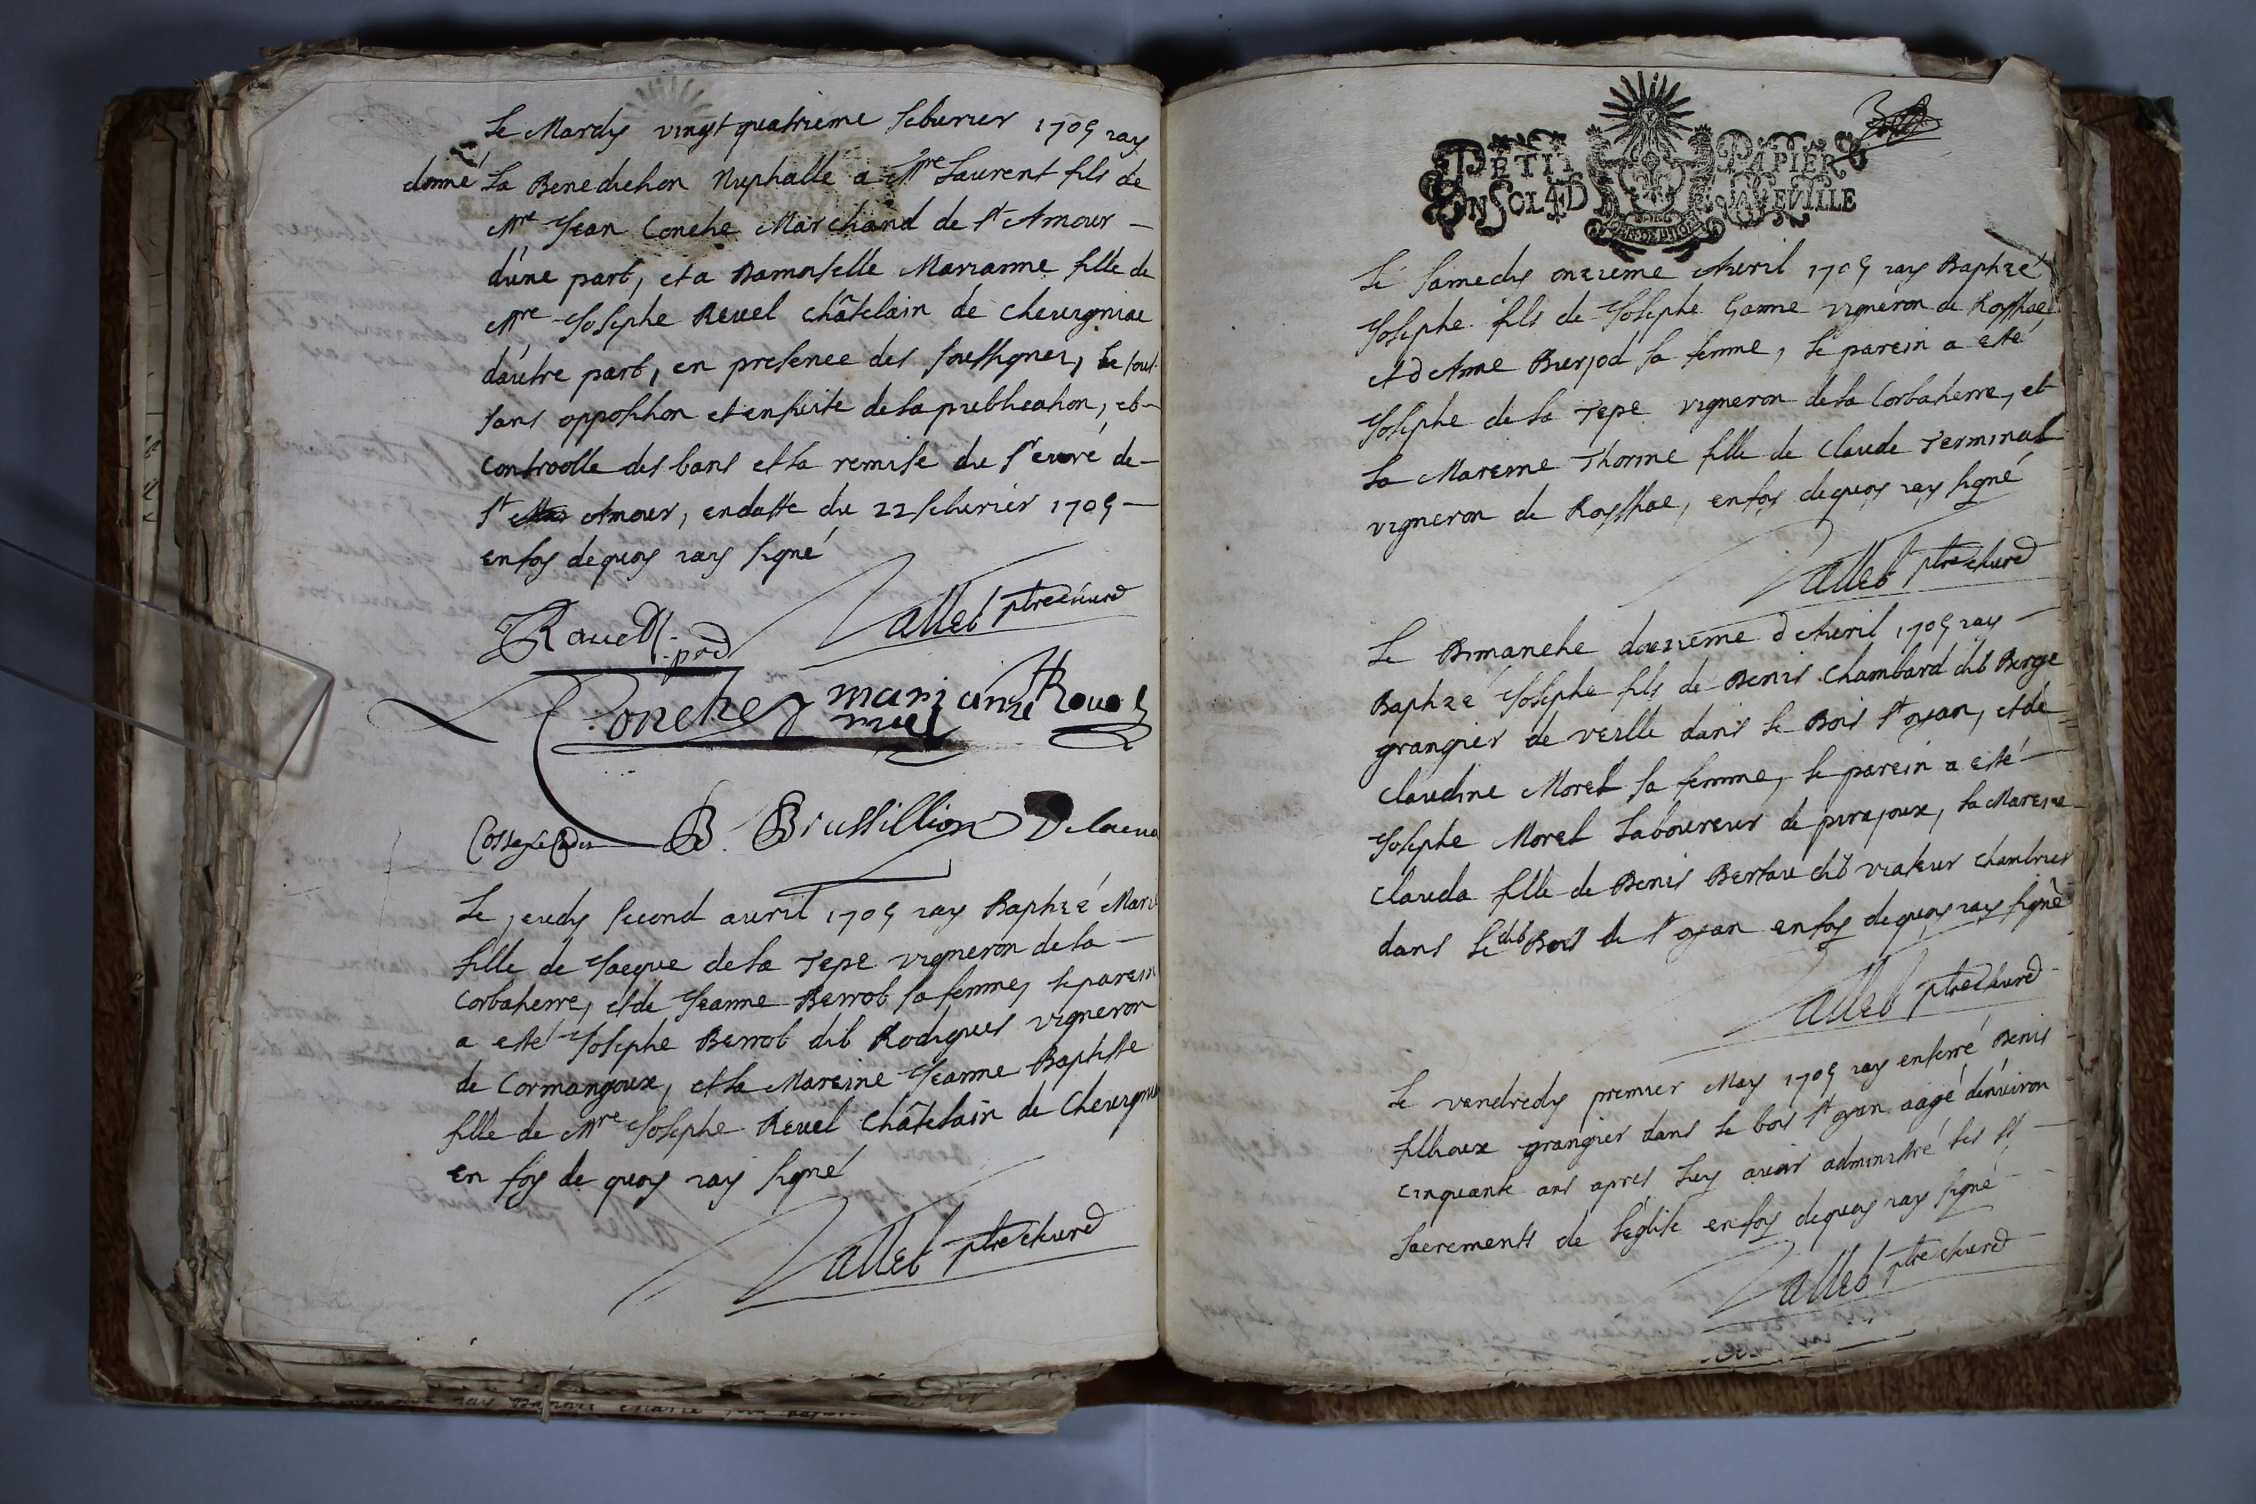 Le Mardy vingt quatrieme feburier 1705 iay
donné la Benediction Nuptialle a Mre Laurent fils de
Mre Jean Conche Marchand de St Amour
d'une part, et a Damoiselle Marianne fille de
Mre Joseph Revel Châtelain de Chevigniae
d'autre part, en presence des soussignez, le tout
sans opposition et ensuite de la publication, et
controolle des bans et la remise du Sr curé de
St Amour, en datte du 22 feburier 1705
en foy de quoy iay signé
Vallet ptre curé
Conche
mari anne Revel
B. Brussillion
Le jeudy second avril 1705 iay Baptizé Mari
fille de Jacque de la Tepe vigneron de la
Corbatierre, et de Jeanne Berrot sa femme, le parein
a esté Joseph Berrot dit Rodigues vigneron
de Cormangoux, et la Mareine Jeanne Baptiste
fille de Mre Joseph Revel Châtelain de Chevigni
en foy de quoy iay signé
Vallet ptre curé
PETIT PAPIER
EN SOL 4D LA FEVILLE
Le Samedy onzieme Avril 1705 iay Baptizé
Joseph fils de Joseph Ganne vigneron de Royssiae
et d'Anne Burjod sa femme, le parein a esté
Joseph de la Tepe vigneron de la Corbatierre, et
la Mareine Thorine fille de Claude Terminal
vigneron de Royssiae, en foy de quoy iay signé
Vallet ptre curé
Le Dimanche douzieme d'Avril 1705 iay
Baptizé Joseph fils de Denis Chambard dit Berge
grangier de veille dans le Bois St oyan, et de
Claudine Morel sa femme, le parein a esté
Joseph Morel Laboureur de pirajoux, la Mareine
Clauda fille de Denis Bertau dit viateur chambrier
dans ledit Bois de St oyan en foy de quoy iay signé
Vallet ptre curé
Le vendredy premier May 1705 iay enterré Denis
filhoux grangier dans le bois St oyan aagé d'environ
cinquante ans apres luy avoir administré les Sts
Sacrements de l'église en foy de quoy iay signé
Vallet ptre curé